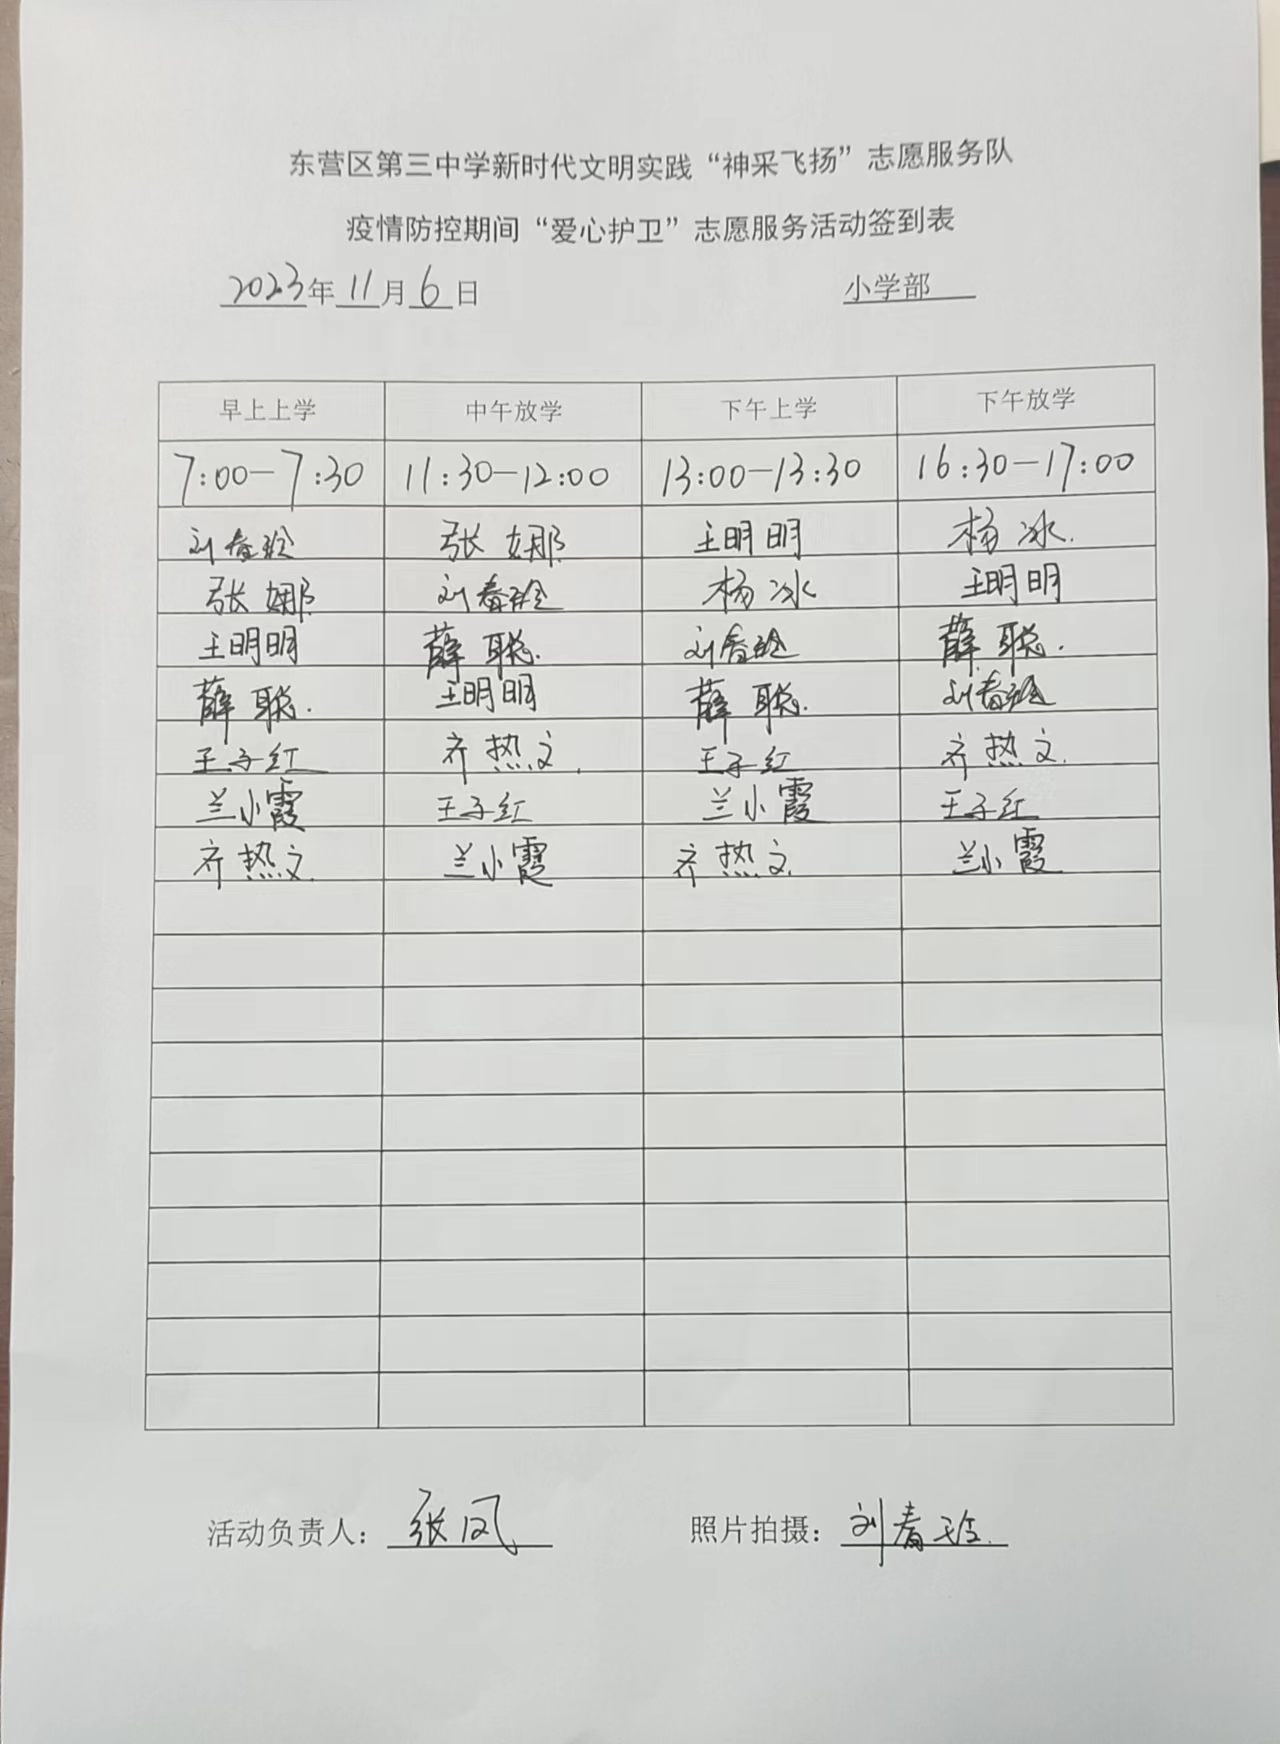 东营区第三中学新时代文明实践“神采飞扬”志愿服务队
疫情防控期间“爱心护卫”志愿服务活动签到表
2023年11月6日 小学部
早上上学 中午放学 下午上学 下午放学
7:00-7:30 11:30-12:00 13:00-13:30 16:30-17:00
刘春玲 张娜 王明明 杨冰
张娜 刘春玲 杨冰 王明明
王明明 薛聪 刘春玲 薛聪
薛聪 王明明 薛聪 刘春玲
王子红 齐热文 王子红 齐热文
兰小霞 王子红 兰小霞 王子红
齐热文 兰小霞 齐热文 兰小霞
活动负责人：张凤 照片拍摄：刘春玲